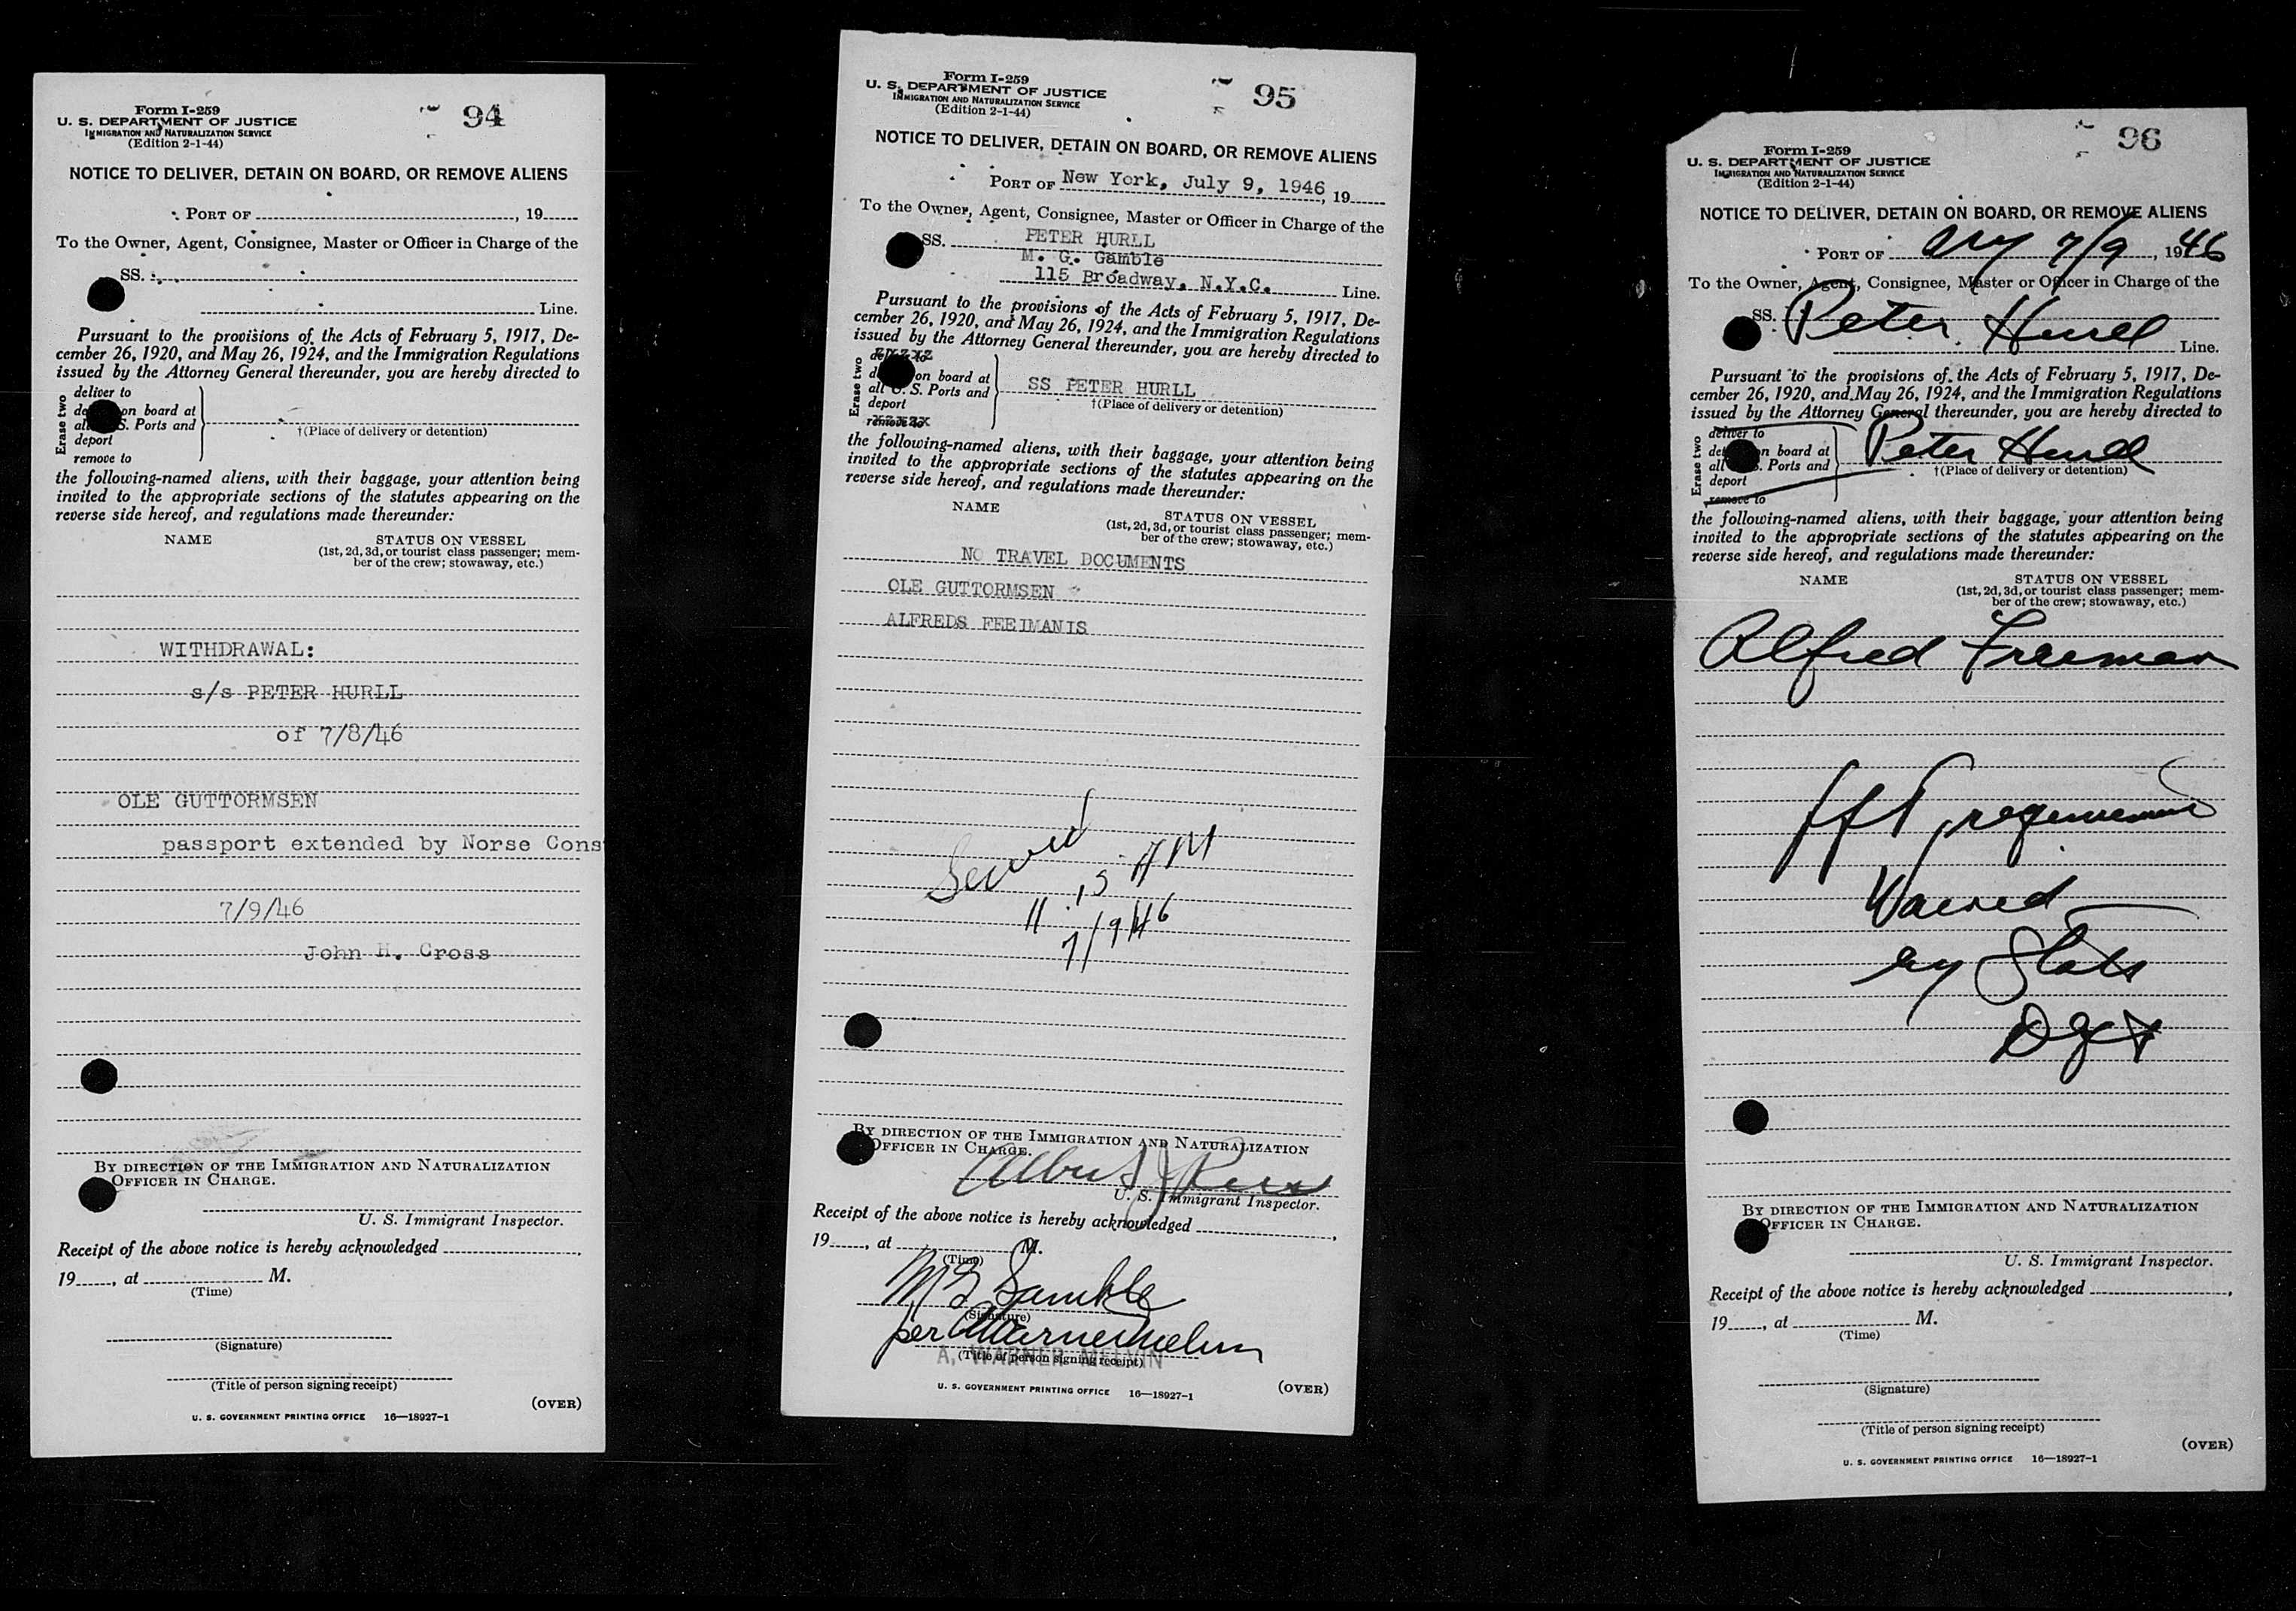 94
Form I-259
U. S. DEPARTMENT OF JUSTICE
IMMIGRATION AND NATURALIZATION SERVICE
(Edition 2-1-44)
NOTICE TO DELIVER, DETAIN ON BOARD, OR REMOVE ALIENS
PORT OF , 19
To the Owner, Agent, Consignee, Master or Officer in Charge of the
SS.
Line.
Pursuant to the provisions of the Acts of February 5, 1917, De-
cember 26, 1920, and May 26, 1924, and the Immigration Regulations
issued by the Attorney General thereunder, you are hereby directed to
Erase two
deliver to
on board at
Ports and
deport
remove to
†(Place of delivery or detention)
the following-named aliens, with their baggage, your attention being
invited to the appropriate sections of the statutes appearing on the
reverse side hereof, and regulations made thereunder:
NAME STATUS ON VESSEL
(1st, 2d, 3d, or tourist class passenger; mem-
ber of the crew; stowaway, etc.)
WITHDRAWAL:
s/s PETER HURLL
of 7/8/46
OLE GUTTORMSEN
passport extended by Norse Cons
7/9/46
John H. Cross
BY DIRECTION OF THE IMMIGRATION AND NATURALIZATION
OFFICER IN CHARGE.
U. S. Immigrant Inspector.
Receipt of the above notice is hereby acknowledged ,
19 , at M.
(Time)
(Signature)
(Title of person signing receipt)
(OVER)
U. S. GOVERNMENT PRINTING OFFICE 16—18927-1
95
Form I-259
U. S. DEPARTMENT OF JUSTICE
IMMIGRATION AND NATURALIZATION SERVICE
(Edition 2-1-44)
NOTICE TO DELIVER, DETAIN ON BOARD, OR REMOVE ALIENS
PORT OF New York, July 9, 1946, 19
To the Owner, Agent, Consignee, Master or Officer in Charge of the
SS. PETER HURLL
M. G. Gamble
115 Broadway, N.Y.C. Line.
Pursuant to the provisions of the Acts of February 5, 1917, De-
cember 26, 1920, and May 26, 1924, and the Immigration Regulations
issued by the Attorney General thereunder, you are hereby directed to
Erase two
on board at
all U. S. Ports and
deport
remove to
SS PETER HURLL
†(Place of delivery or detention)
the following-named aliens, with their baggage, your attention being
invited to the appropriate sections of the statutes appearing on the
reverse side hereof, and regulations made thereunder:
NAME STATUS ON VESSEL
(1st, 2d, 3d, or tourist class passenger; mem-
ber of the crew; stowaway, etc.)
NO TRAVEL DOCUMENTS
OLE GUTTORMSEN
ALFREDS FEEIMANIS
Served
11.15 AM
7/9/46
BY DIRECTION OF THE IMMIGRATION AND NATURALIZATION
OFFICER IN CHARGE.
Albert J
U. S. Immigrant Inspector.
Receipt of the above notice is hereby acknowledged ,
19 , at M.
(Time)
M G Gamble
(Signature)
per A Warner Melvin
A. WARNER MELVIN
(Title of person signing receipt)
U. S. GOVERNMENT PRINTING OFFICE 16—18927-1 (OVER)
96
Form I-259
U. S. DEPARTMENT OF JUSTICE
IMMIGRATION AND NATURALIZATION SERVICE
(Edition 2-1-44)
NOTICE TO DELIVER, DETAIN ON BOARD, OR REMOVE ALIENS
PORT OF NY 7/9, 1946
To the Owner, Agent, Consignee, Master or Officer in Charge of the
SS. Peter Hurll
Line.
Pursuant to the provisions of the Acts of February 5, 1917, De-
cember 26, 1920, and May 26, 1924, and the Immigration Regulations
issued by the Attorney General thereunder, you are hereby directed to
Erase two
deliver to
on board at
Ports and
deport
remove to
Peter Hurll
†(Place of delivery or detention)
the following-named aliens, with their baggage, your attention being
invited to the appropriate sections of the statutes appearing on the
reverse side hereof, and regulations made thereunder:
NAME STATUS ON VESSEL
(1st, 2d, 3d, or tourist class passenger; mem-
ber of the crew; stowaway, etc.)
Alfred Freeman
Waived
by State
Dept
BY DIRECTION OF THE IMMIGRATION AND NATURALIZATION
OFFICER IN CHARGE.
U. S. Immigrant Inspector.
Receipt of the above notice is hereby acknowledged ,
19 , at M.
(Time)
(Signature)
(Title of person signing receipt)
(OVER)
U. S. GOVERNMENT PRINTING OFFICE 16—18927-1